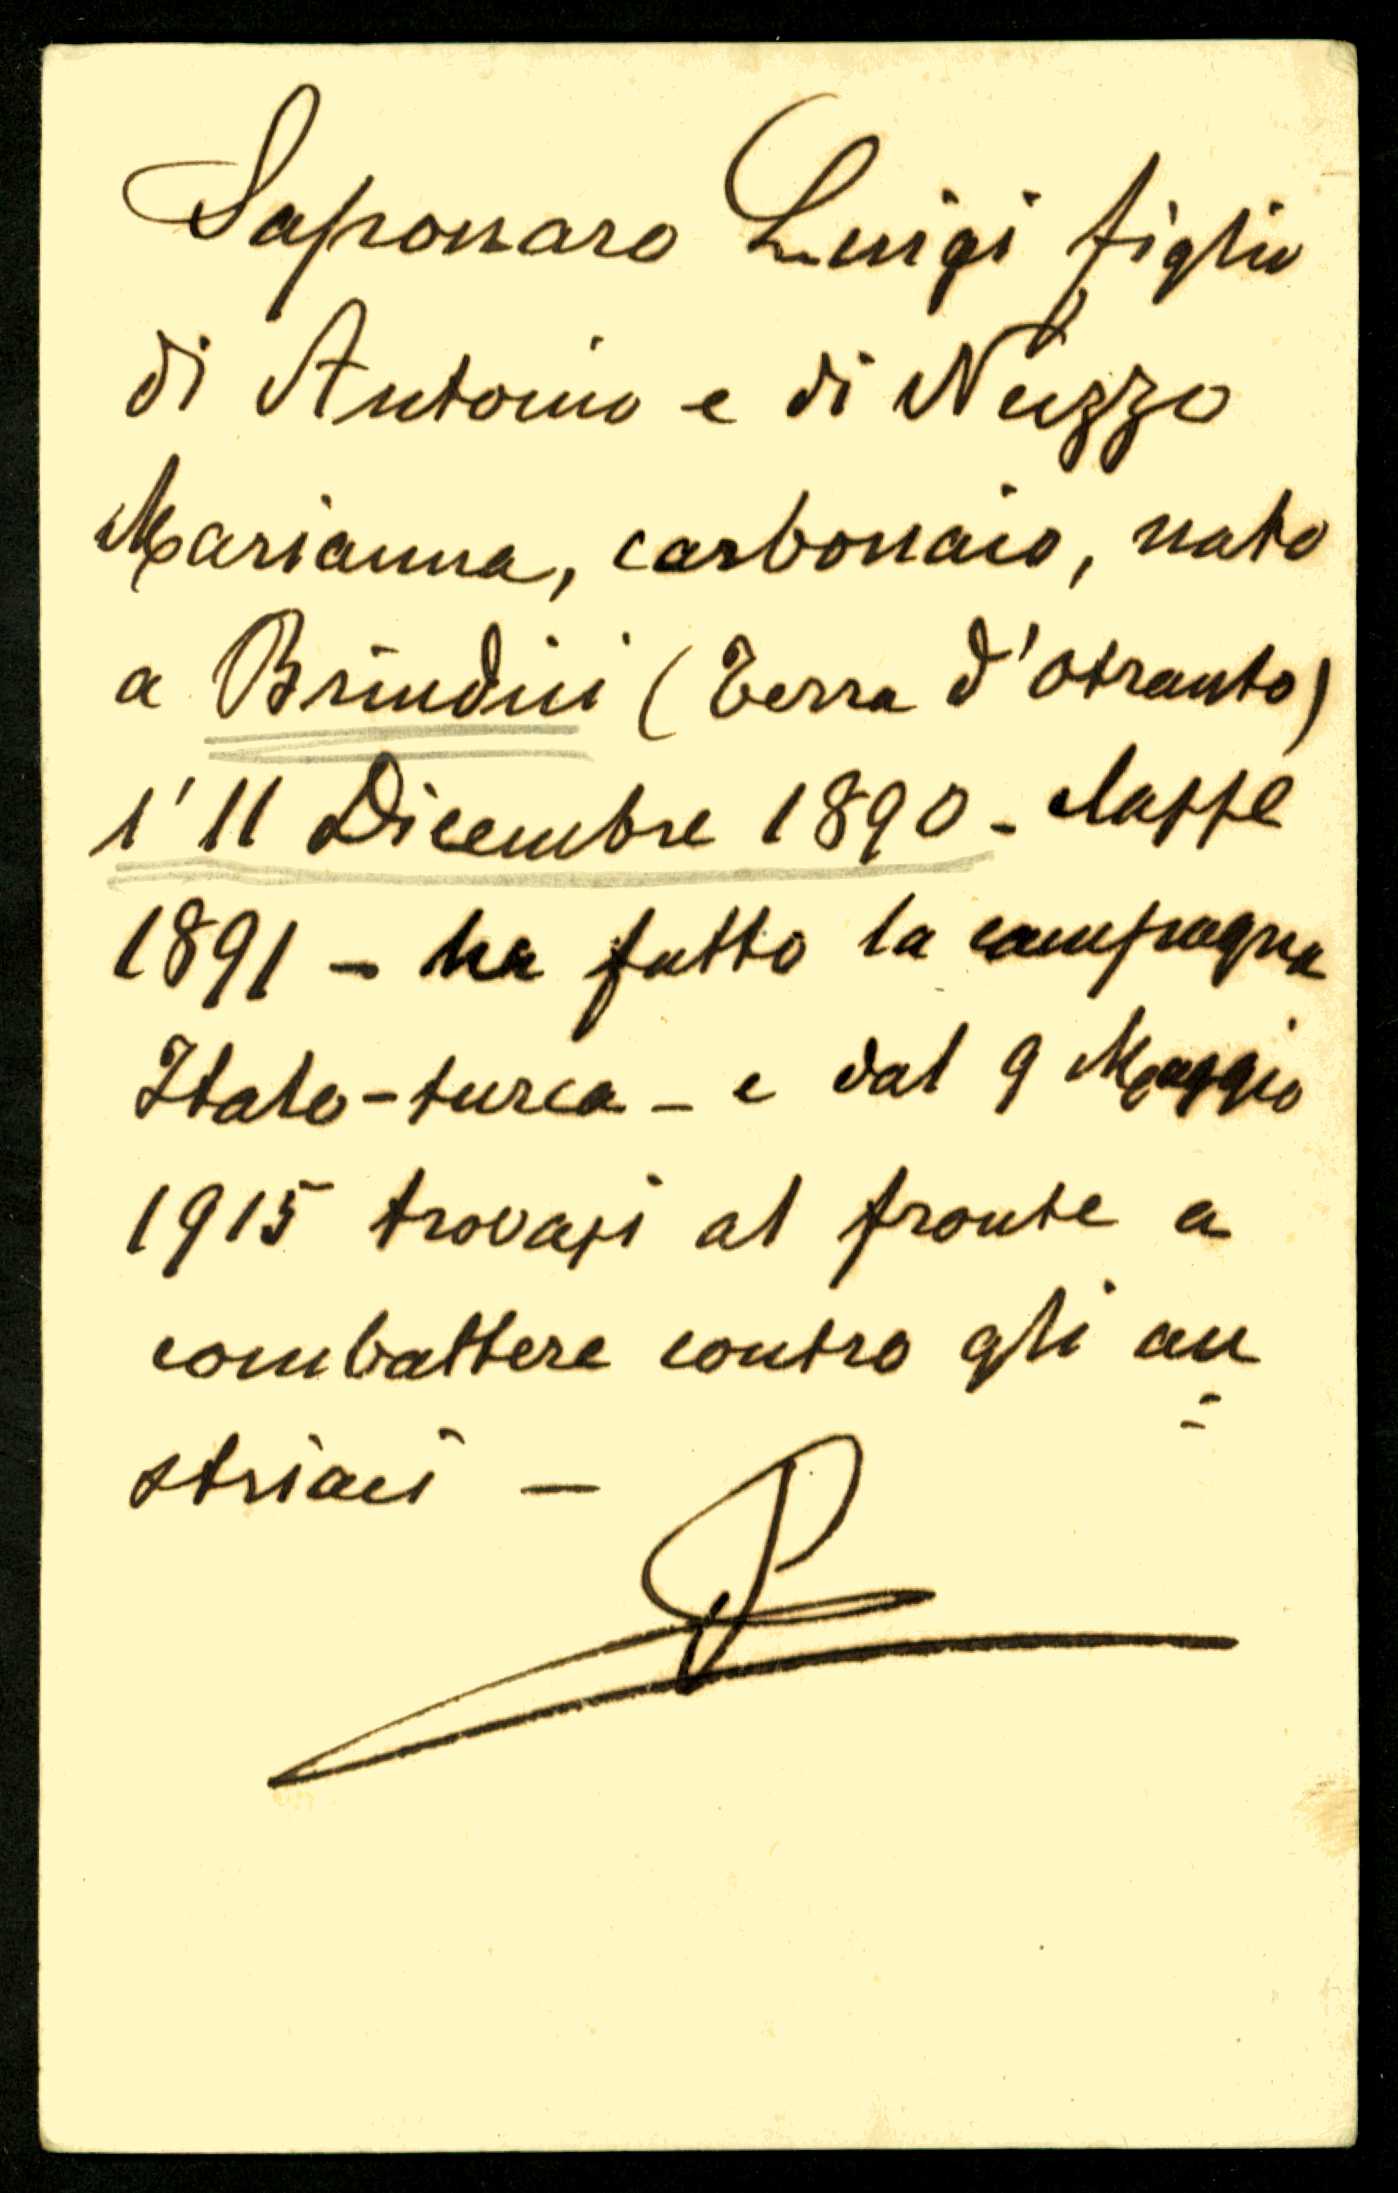 Saponaro Luigi figlio
di Antonio e di Nuzzo
Marianna, carbonaio, nato
a Brindisi (Terra d'Otranto)
l'11 Dicembre 1890 - classe
1891 - ha fatto la campagna
Italo-turca - e dal 9 Maggio
1915 trovasi al fronte a
combattere contro gli au=
striaci -